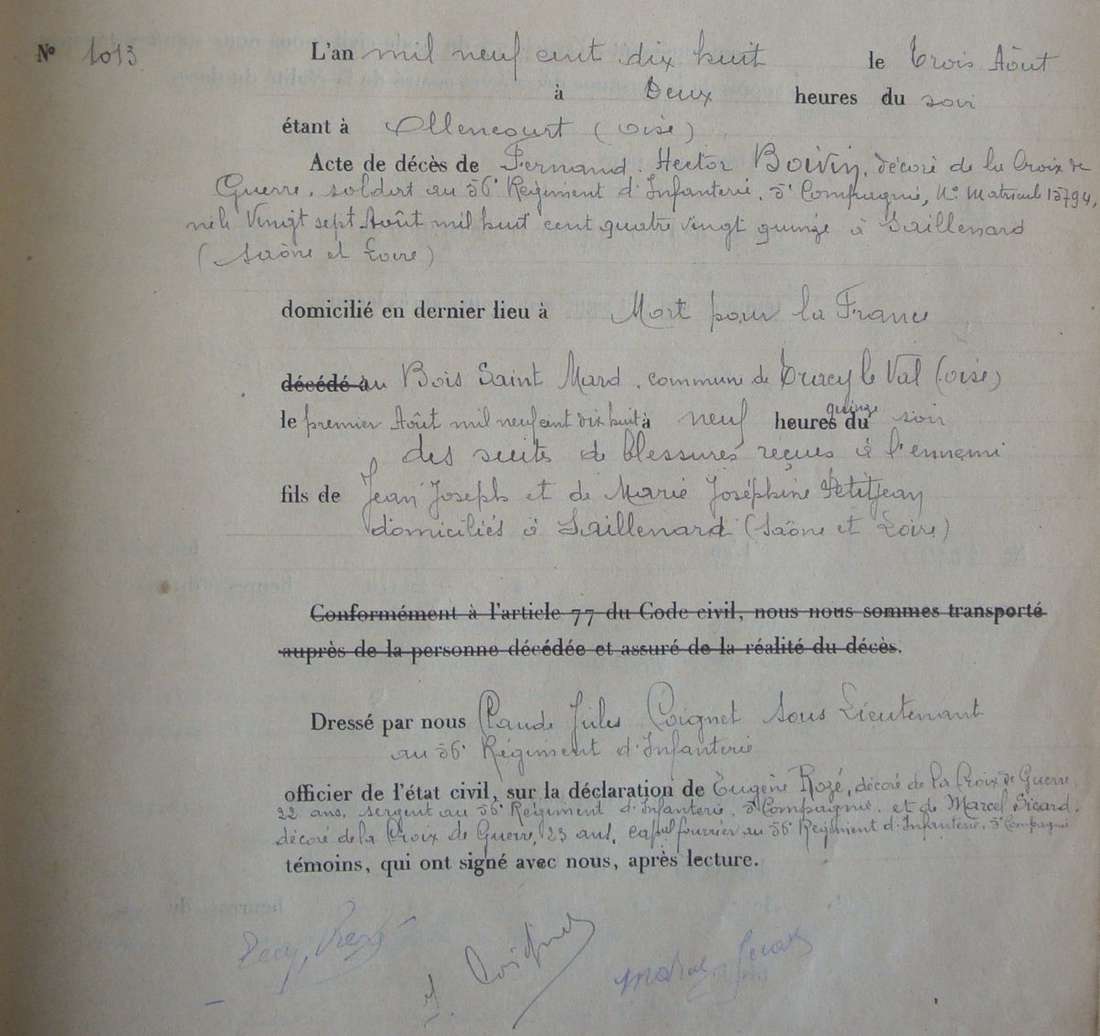 N° 1013 L'an mil neuf cent dix huit le Trois Aôut
à Deux heures du soir
étant à Ollencourt (Oise)
Acte de décès de Fernand Hector Boivin, décoré de la Croix de
Guerre, soldat au 56e Régiment d'Infanterie, 5e Compagnie, N° Matricule 15794,
né le Vingt sept Août mil huit cent quatre vingt quinze à Saillenard
(Saône et Loire)
domicilié en dernier lieu à Mort pour la France
décédé à au Bois Saint Mard, commune de Tracy le Val (Oise)
le premier Août mil neuf cent dix huit à neuf heures quinze du soir
des suites de blessures reçues à l'ennemi
fils de Jean Joseph et de Marie Joséphine Petitjean
domiciliés à Saillenard (Saône et Loire)
Conformément à l'article 77 du Code civil, nous nous sommes transporté
auprès de la personne décédée et assuré de la réalité du décès.
Dressé par nous Claude Jules Coignet Sous Lieutenant
au 56e Régiment d'Infanterie
officier de l'état civil, sur la déclaration de Eugène Rozé, décoré de la Croix de Guerre
22 ans, sergent au 56e Régiment d'Infanterie, 5e Compagnie, et de Marcel Sicard,
décoré de la Croix de Guerre, 23 ans, capal fourrier au 56e Régiment d'Infanterie, 5e Compagnie
témoins, qui ont signé avec nous, après lecture.
Coignet